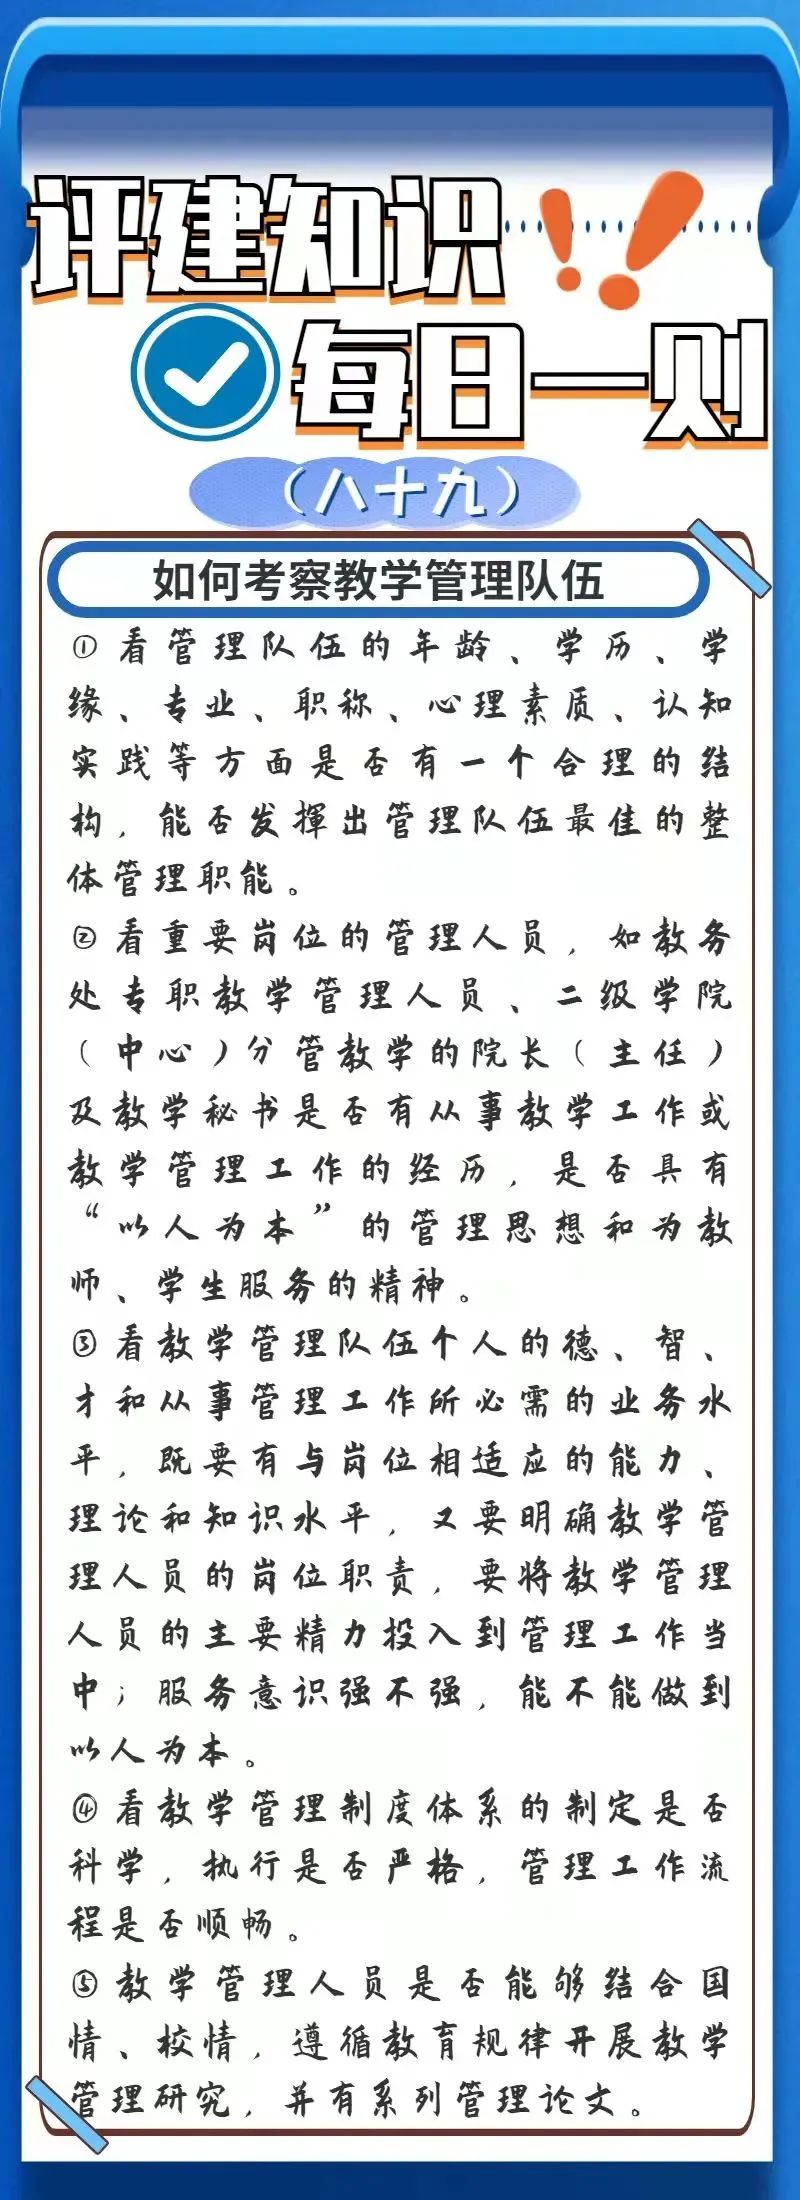 评建知识
每日一则
（八十九）
如何考察教学管理队伍
①看管理队伍的年龄、学历、学
缘、专业、职称、心理素质、认知
实践等方面是否有一个合理的结
构，能否发挥出管理队伍最佳的整
体管理职能。
②看重要岗位的管理人员，如教务
处专职教学管理人员、二级学院
（中心）分管教学的院长（主任）
及教学秘书是否有从事教学工作或
教学管理工作的经历，是否具有
“以人为本”的管理思想和为教
师、学生服务的精神。
③看教学管理队伍个人的德、智、
才和从事管理工作所必需的业务水
平，既要有与岗位相适应的能力、
理论和知识水平，又要明确教学管
理人员的岗位职责，要将教学管理
人员的主要精力投入到管理工作当
中；服务意识强不强，能不能做到
以人为本。
④看教学管理制度体系的制定是否
科学，执行是否严格，管理工作流
程是否顺畅。
⑤教学管理人员是否能够结合国
情、校情，遵循教育规律开展教学
管理研究，并有系列管理论文。